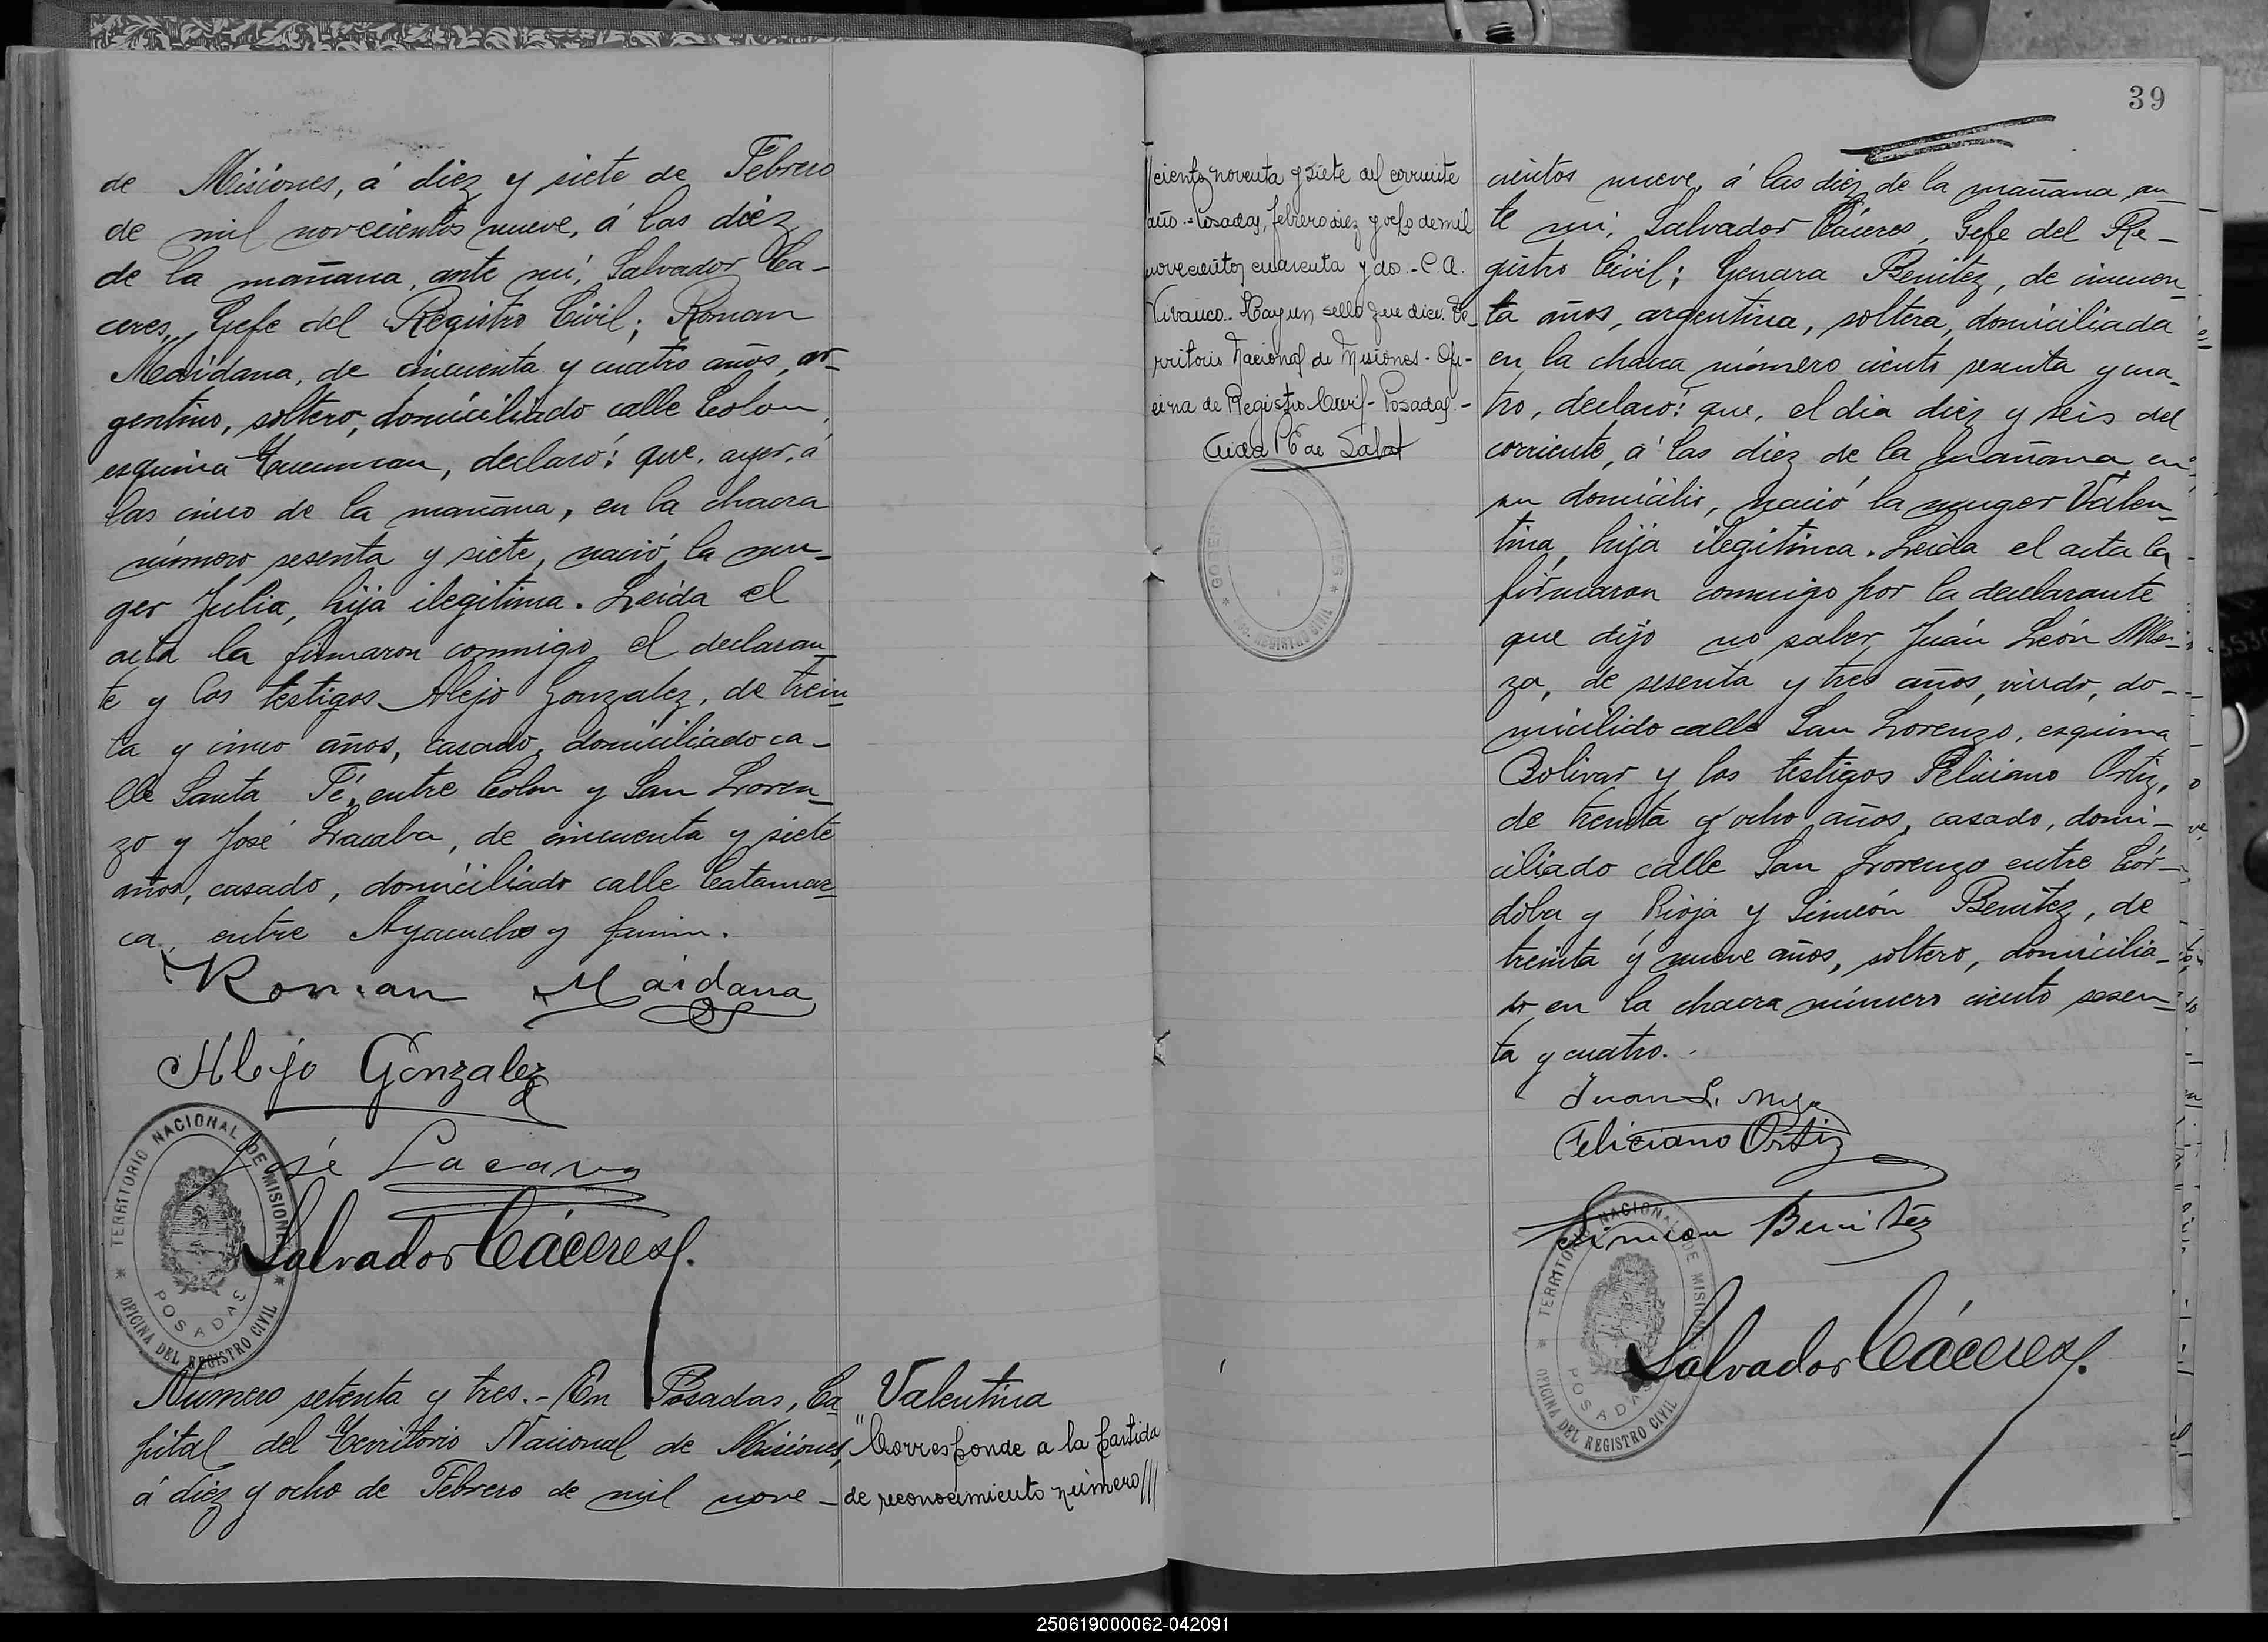 de Misiones, á diez y siete de Febrero
de mil novecientos nueve, á las diez
de la mañana, ante mí, Salvador Ca-
ceres, Gefe del Registro Civil; Roman
Maidana, de cincuenta y cuatro años, ar-
gentino, soltero, domiciliado calle Colon
esquina Tucuman, declaró: que, ayer, á
las cinco de la mañana, en la chacra
número sesenta y siete, nació la mu-
ger Julia, hija ilegitima. Leida el
acta la firmaron conmigo el declaran-
te y los testigos Alejo Gonzalez, de trein-
ta y cinco años, casado, domiciliado ca-
lle Santa Fé, entre Colon y San Loren-
zo y José Lacaba, de cincuenta y siete
años, casado, domiciliado calle Catamar-
ca, entre Ayacucho y Junin.
Roman Maidana
Alejo Gonzalez
José Lacava
Salvador Cáceres
TERRITORIO NACIONAL DE MISIONES
POSADAS
OFICINA DEL REGISTRO CIVIL
Número setenta y tres.- En Posadas, Ca-
pital del Territorio Nacional de Misiones,
á diez y ocho de Febrero de mil nove-
Valentina
"Corresponde a la partida
de reconocimiento número///
39
//ciento noventa y siete del corriente
año.- Posadas, febrero diez y ocho de mil
novecientos cuarenta y dos.- C.A.
Vivanco. Hay un sello que dice: Te-
rritorio Nacional de Misiones - Ofi-
cina de Registro Civil - Posadas.-
cientos nueve, á las diez de la mañana, an-
te mí, Salvador Cáceres, Gefe del Re-
gistro Civil; Genara Benitez, de cincuen-
ta años, argentina, soltera, domiciliada
en la chacra número ciento sesenta y cua-
tro, declaró: que, el dia diez y seis del
corriente, á las diez de la mañana, en
su domicilio, nació la muger Valen-
tina, hija ilegitima. Leida el acta la
firmaron conmigo por la declarante
que dijo no saber, Juán León Me-
za, de sesenta y tres años, viudo, do-
micilido calle San Lorenzo, esquina
Bolivar y los testigos Feliciano Ortiz,
de treinta y ocho años, casado, domi-
ciliado calle San Lorenzo entre Cór-
doba y Rioja y Simeón Benitez, de
treinta y nueve años, soltero, domicilia-
do en la chacra número ciento sesen-
ta y cuatro.
Juan L. Meza
Feliciano Ortiz
Simeon Benitez
Salvador Cáceres
TERRITORIO NACIONAL DE MISIONES
POSADAS
OFICINA DEL REGISTRO CIVIL
250619000062-042091